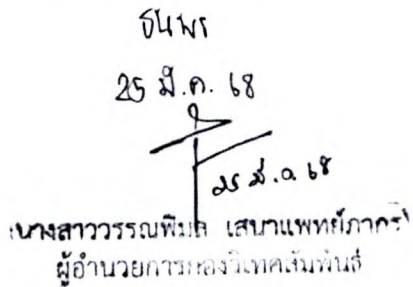 ธนพร
25 มี.ค. 68
25 มี.ค 68
นางสาววรรณพิมล เสนาแพทย์ภากร
ผู้อำนวยการกองวิเทศสัมพันธ์